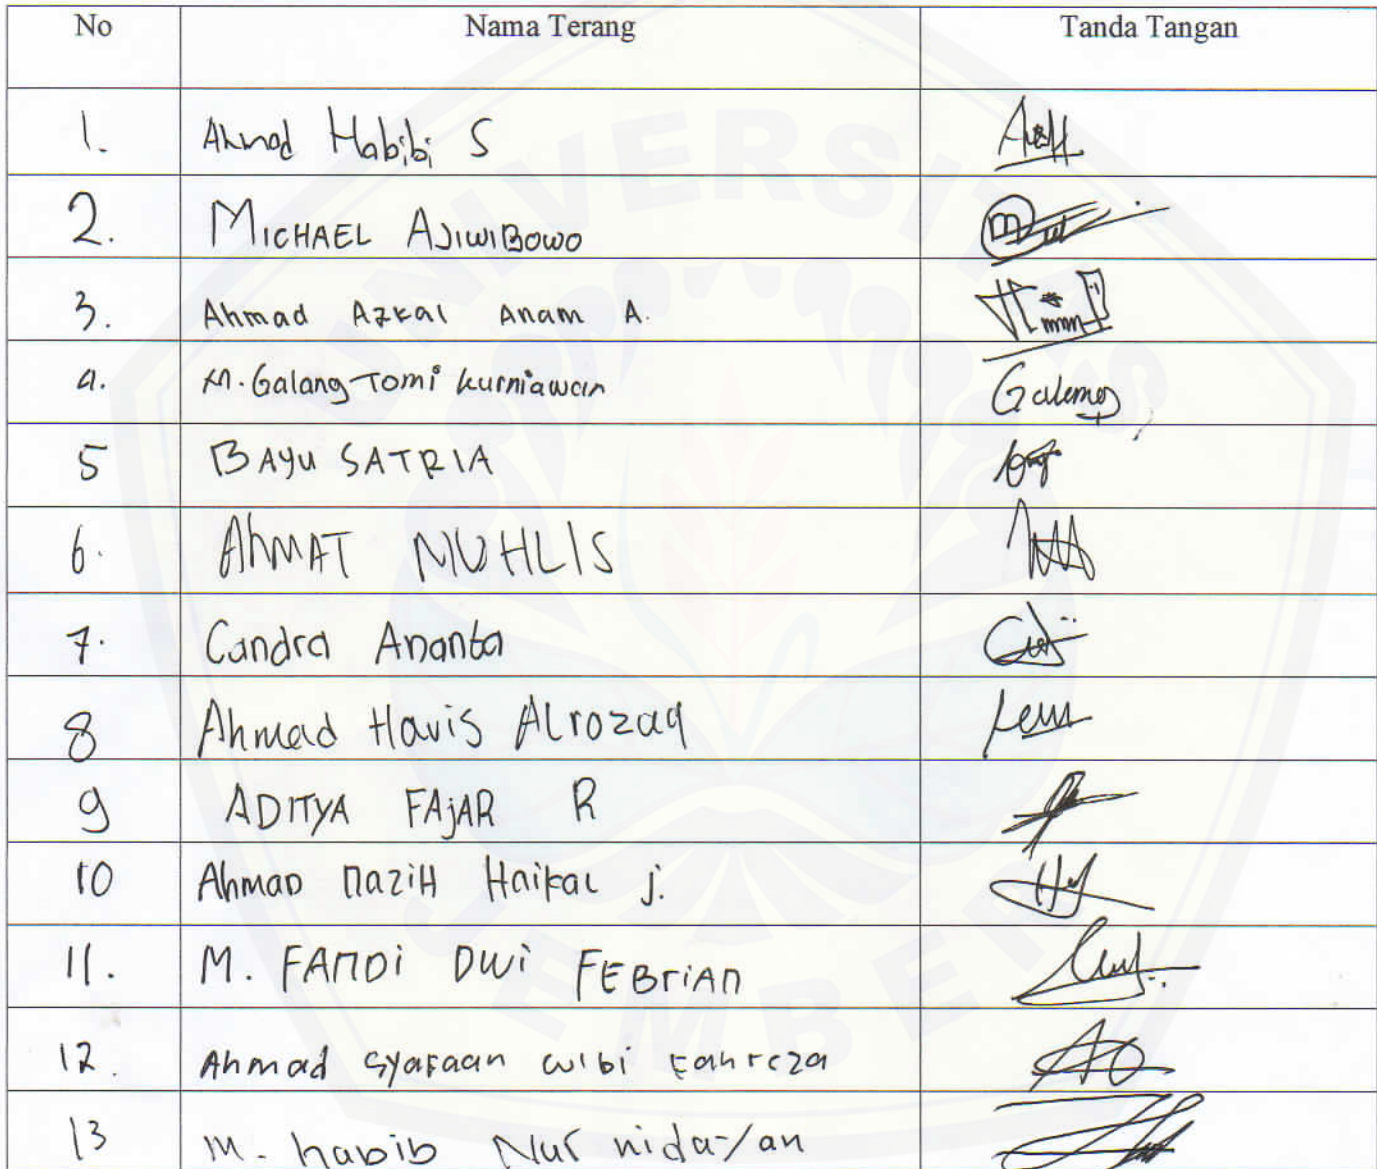 No Nama Terang Tanda Tangan
1. Ahmad Habibi S
2. MICHAEL AJIWIBOWO
3. Ahmad Azkal Anam A.
4. M. Galang Tomi kurniawan Galang
5 BAYU SATRIA
6. AhMAT MUHLIS
7. Candra Ananta
8 Ahmad Havis Alrozaq
9 ADITYA FAjAR R
10 Ahmad naziH Haikal j.
11. M. FAnDi Dwi FEBriAn
12. Ahmad syafaan wibi fahreza
13 M. habib Nur
UNIVERSITAS
JEMBER